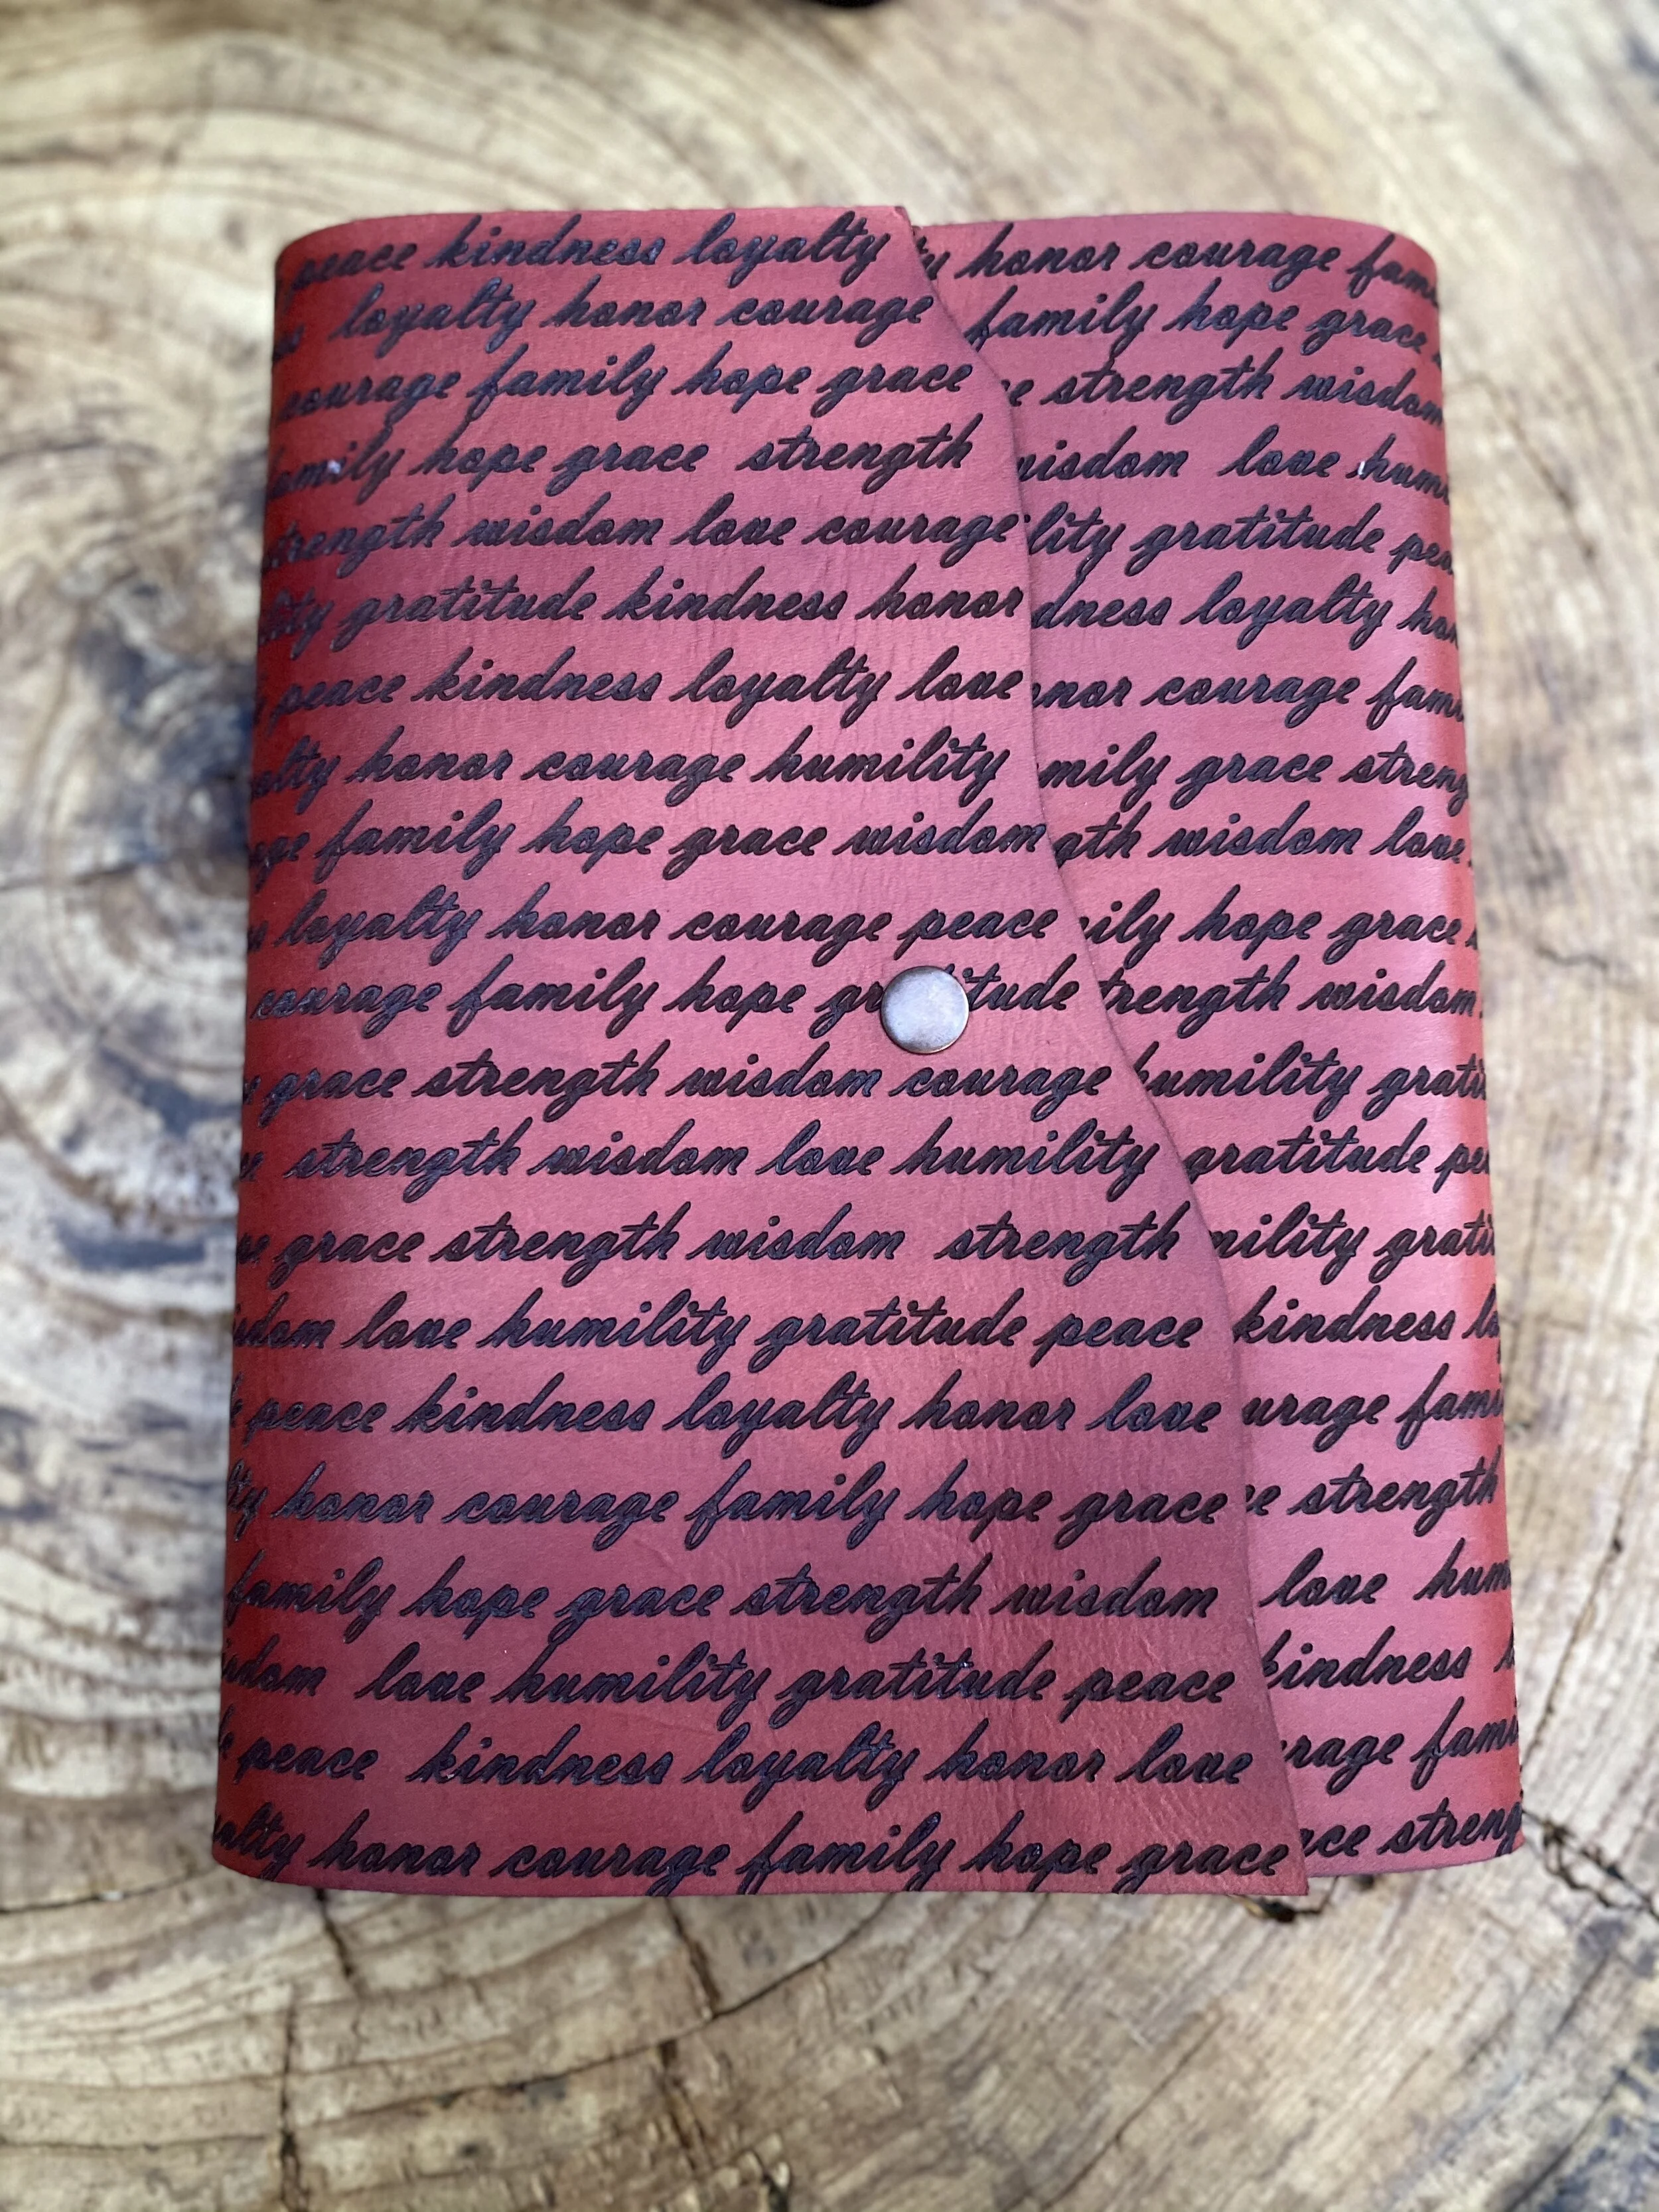 peace kindness loyalty honor courage
loyalty honor courage family hope grace
courage family hope grace strength wisdom
family hope grace strength wisdom love
strength wisdom love courage gratitude
gratitude kindness honor loyalty
peace kindness loyalty love courage
honor courage humility grace
family hope grace wisdom wisdom love
loyalty honor courage peace hope grace
courage family hope wisdom
grace strength wisdom courage humility
strength wisdom love humility gratitude
grace strength wisdom strength
love humility gratitude peace kindness
peace kindness loyalty honor love
honor courage family hope grace strength
family hope grace strength wisdom love
love humility gratitude peace kindness
peace kindness loyalty honor love
honor courage family hope grace